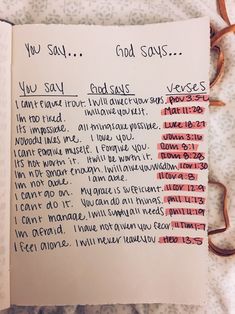 You say... God says...
You say God says verses
I can't figure it out. I will direct your steps. Prov 3:5-6
I'm too tired. I will give you rest. Mat 11:28
It's impossible. all things are possible. Luke 18:27
Nobody loves me. I love you. John 3:16
I can't forgive myself. I forgive you. Rom 8:1
It's not worth it. It will be worth it. Rom 8:28
I'm not smart enough. I will give you wisdom. 1 Cor 1:30
I'm not able. I am able. II Cor 9:8
I can't go on. My grace is sufficient. II Cor 12:9
I can't do it. You can do all things. Phil 4:13
I can't manage. I will supply all needs. Phil 4:19
I'm afraid. I have not given you fear. II Tim 1:7
I feel alone. I will never leave you. Heb 13:5